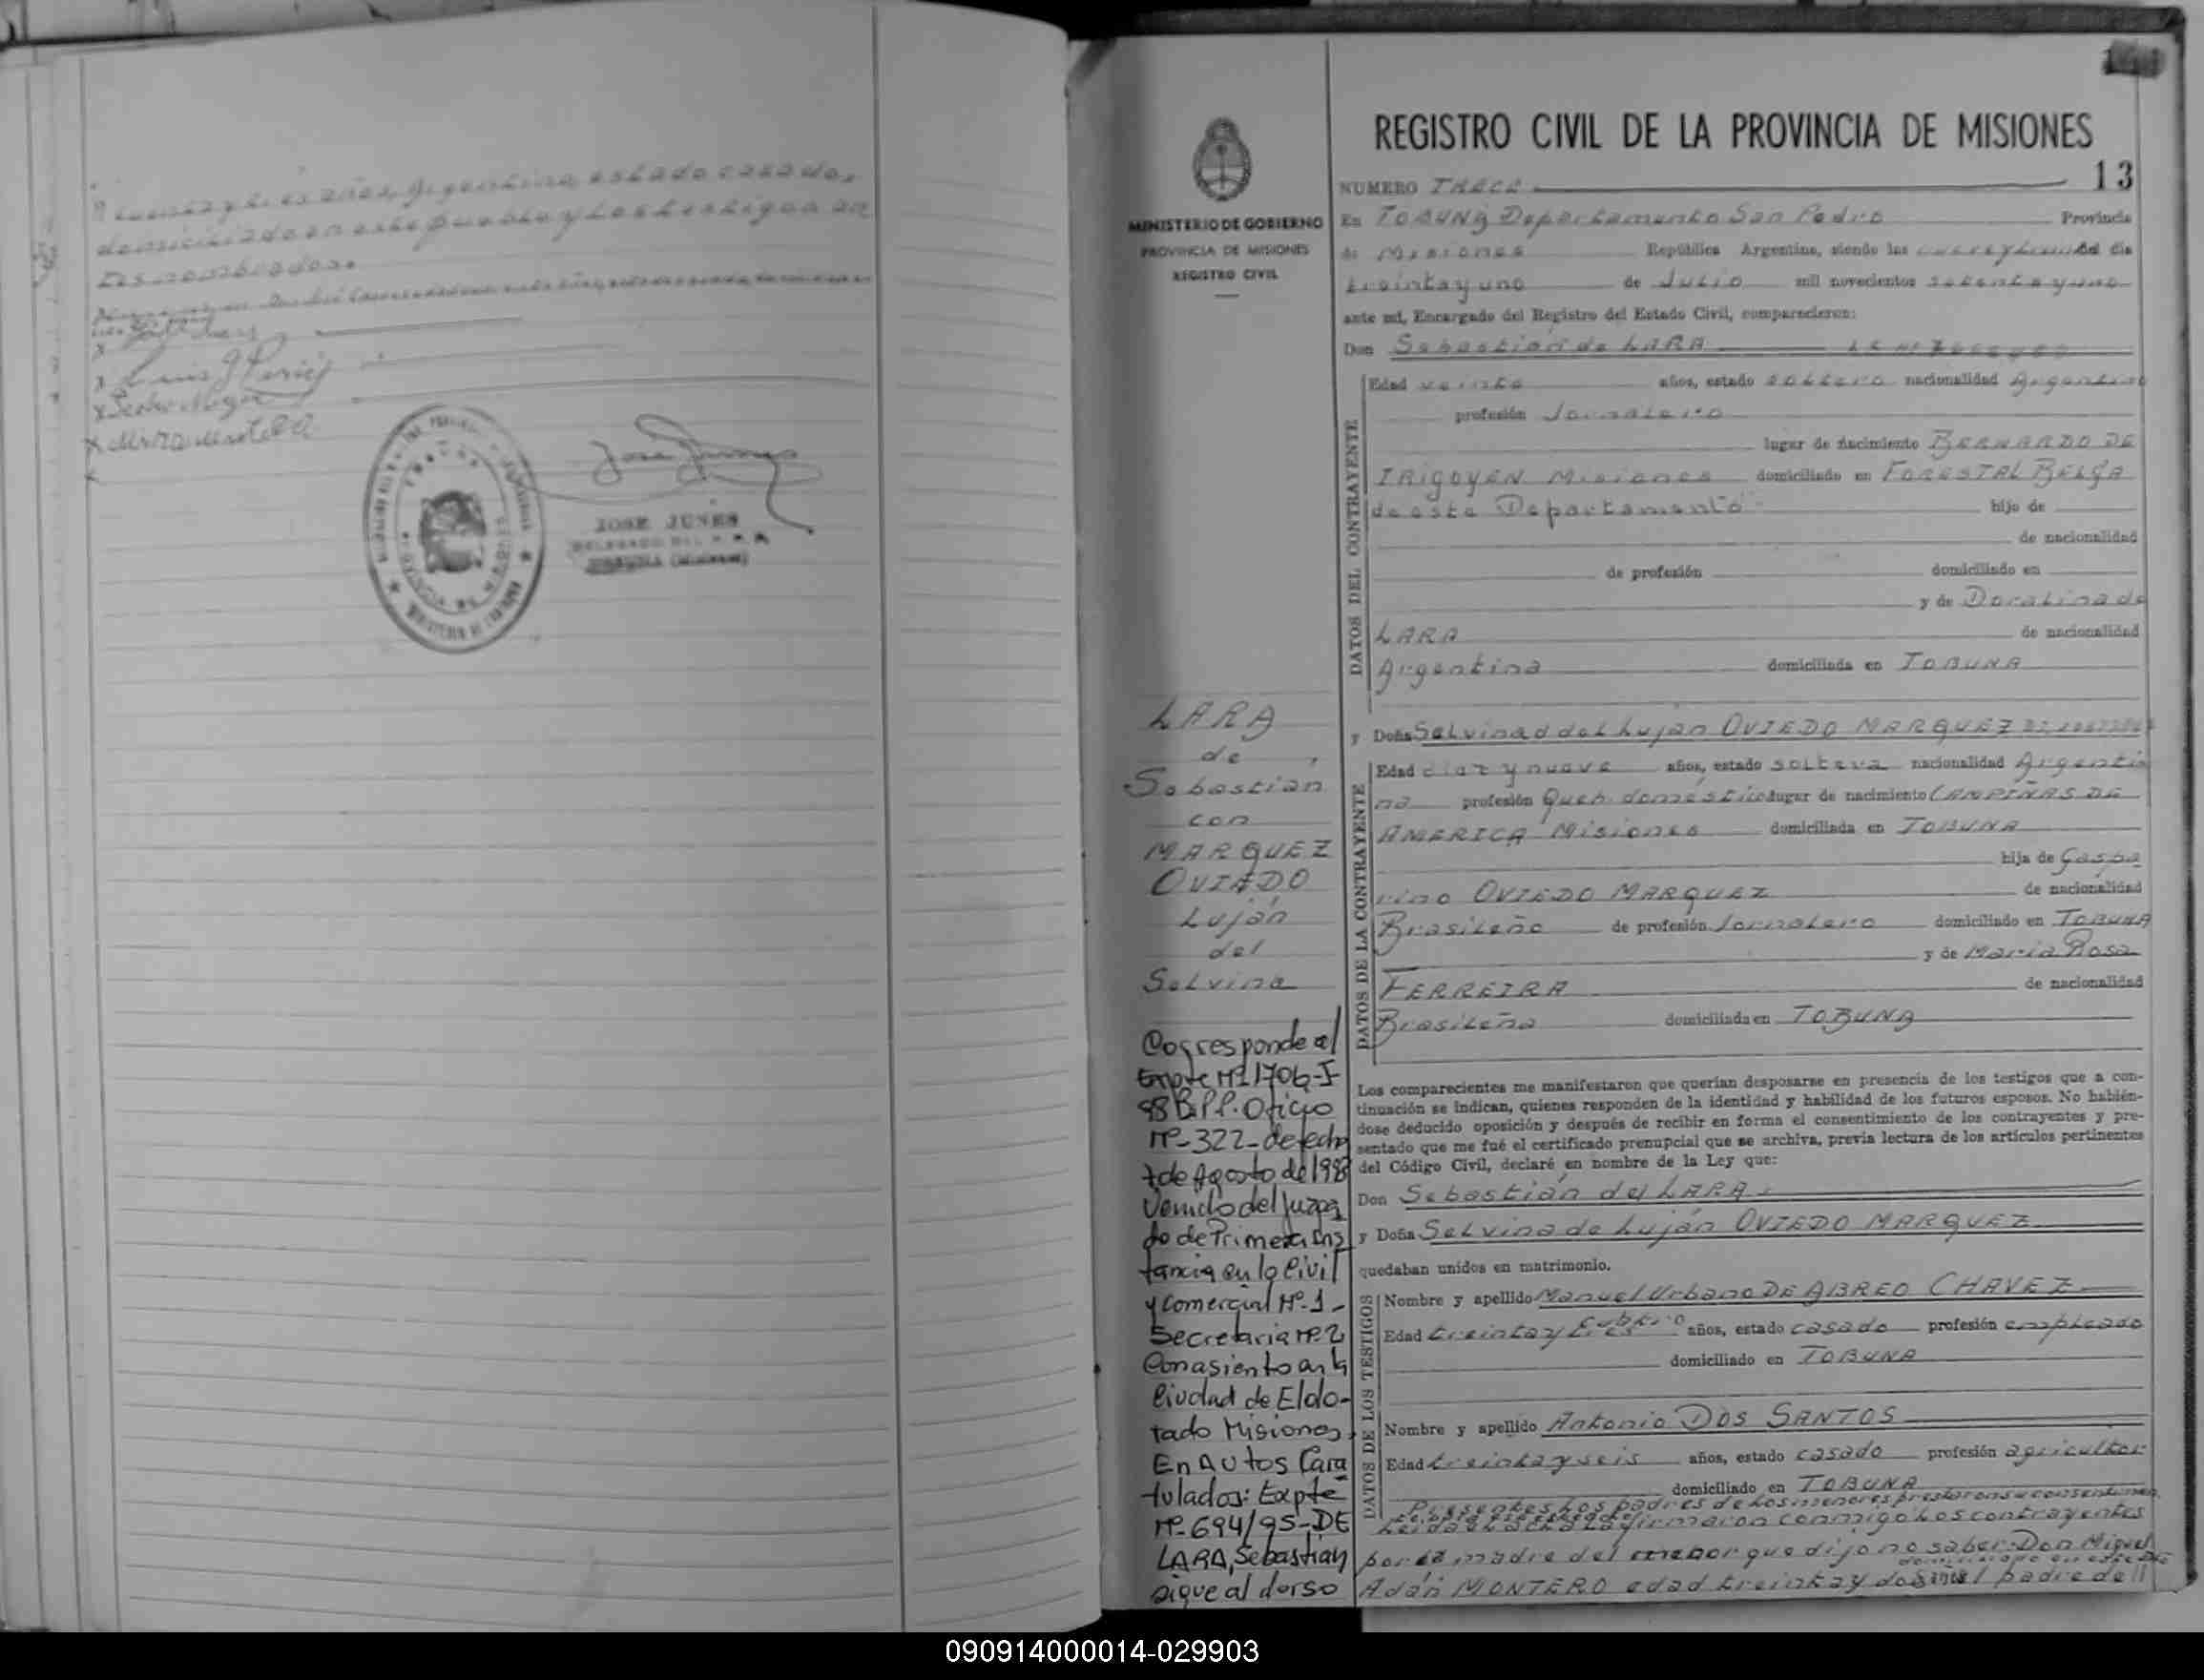 años, Argentino, estado casado,
domiciliado en este pueblo y los testigos an
tes nombrados.
JOSE JUNES
DELEGADO DEL
TOBUNA (Misiones)
MINISTERIO DE GOBIERNO
PROVINCIA DE MISIONES
REGISTRO CIVIL
LARA
de
Sebastián
con
MARQUEZ
OVIEDO
Luján
del
Selvina
Corresponde al
Expte Nº 1706-J-
98 B.P.P. Oficio
Nº-322-de fecha
7 de Agosto de 1998
Venido del Juzga
do de Primera Ins
tancia en lo Civil
y Comercial Nº-1-
Secretaria Nº 2
Con asiento en la
Ciudad de Eldo-
rado Misiones
En Autos Cara
tulados: Expte
Nº-694/95-DE
LARA, Sebastian
sigue al dorso
REGISTRO CIVIL DE LA PROVINCIA DE MISIONES
13
NUMERO TRECE
En TOBUNA Departamento San Pedro Provincia
de Misiones República Argentina, siendo las del día
treinta y uno de Julio mil novecientos setenta y uno
ante mí, Encargado del Registro del Estado Civil, comparecieron:
Don Sebastián de LARA
DATOS DEL CONTRAYENTE
Edad veinte años, estado soltero nacionalidad Argentino
profesión Jornalero
lugar de nacimiento BERNARDO DE
IRIGOYEN Misiones domiciliado en FORESTAL BELGA
de este Departamento hijo de
de nacionalidad
de profesión domiciliado en
y de Doralina de
LARA de nacionalidad
Argentina domiciliada en TOBUNA
y Doña Selvina d del Luján OVIEDO MARQUEZ
DATOS DE LA CONTRAYENTE
Edad diez y nueve años, estado soltera nacionalidad Argenti
na profesión Queh. domésticos lugar de nacimiento CAMPIÑAS DE
AMERICA Misiones domiciliada en TOBUNA
hija de Gaspa
rino OVIEDO MARQUEZ de nacionalidad
Brasileño de profesión Jornalero domiciliado en TOBUNA
y de María Rosa
FERREIRA de nacionalidad
Brasileña domiciliada en TOBUNA
Los comparecientes me manifestaron que querían desposarse en presencia de los testigos que a con-
tinuación se indican, quienes responden de la identidad y habilidad de los futuros esposos. No habién-
dose deducido oposición y después de recibir en forma el consentimiento de los contrayentes y pre-
sentado que me fué el certificado prenupcial que se archiva, previa lectura de los artículos pertinentes
del Código Civil, declaré en nombre de la Ley que:
Don Sebastián de LARA
y Doña Selvina de Luján OVIEDO MARQUEZ
quedaban unidos en matrimonio.
DATOS DE LOS TESTIGOS
Nombre y apellido Manuel Urbano DE ABREO CHAVEZ
Edad treinta y cuatro años, estado casado profesión empleado
domiciliado en TOBUNA
Nombre y apellido Antonio DOS SANTOS
Edad treinta y seis años, estado casado profesión agricultor
domiciliado en TOBUNA
Presentes los padres de los menores prestaron su consentimien
Leida el acta la firmaron conmigo los contrayentes
por la madre del menor que dijo no saber Don Miguel
Adán MONTERO edad treinta y dos años el padre de ll
090914000014-029903